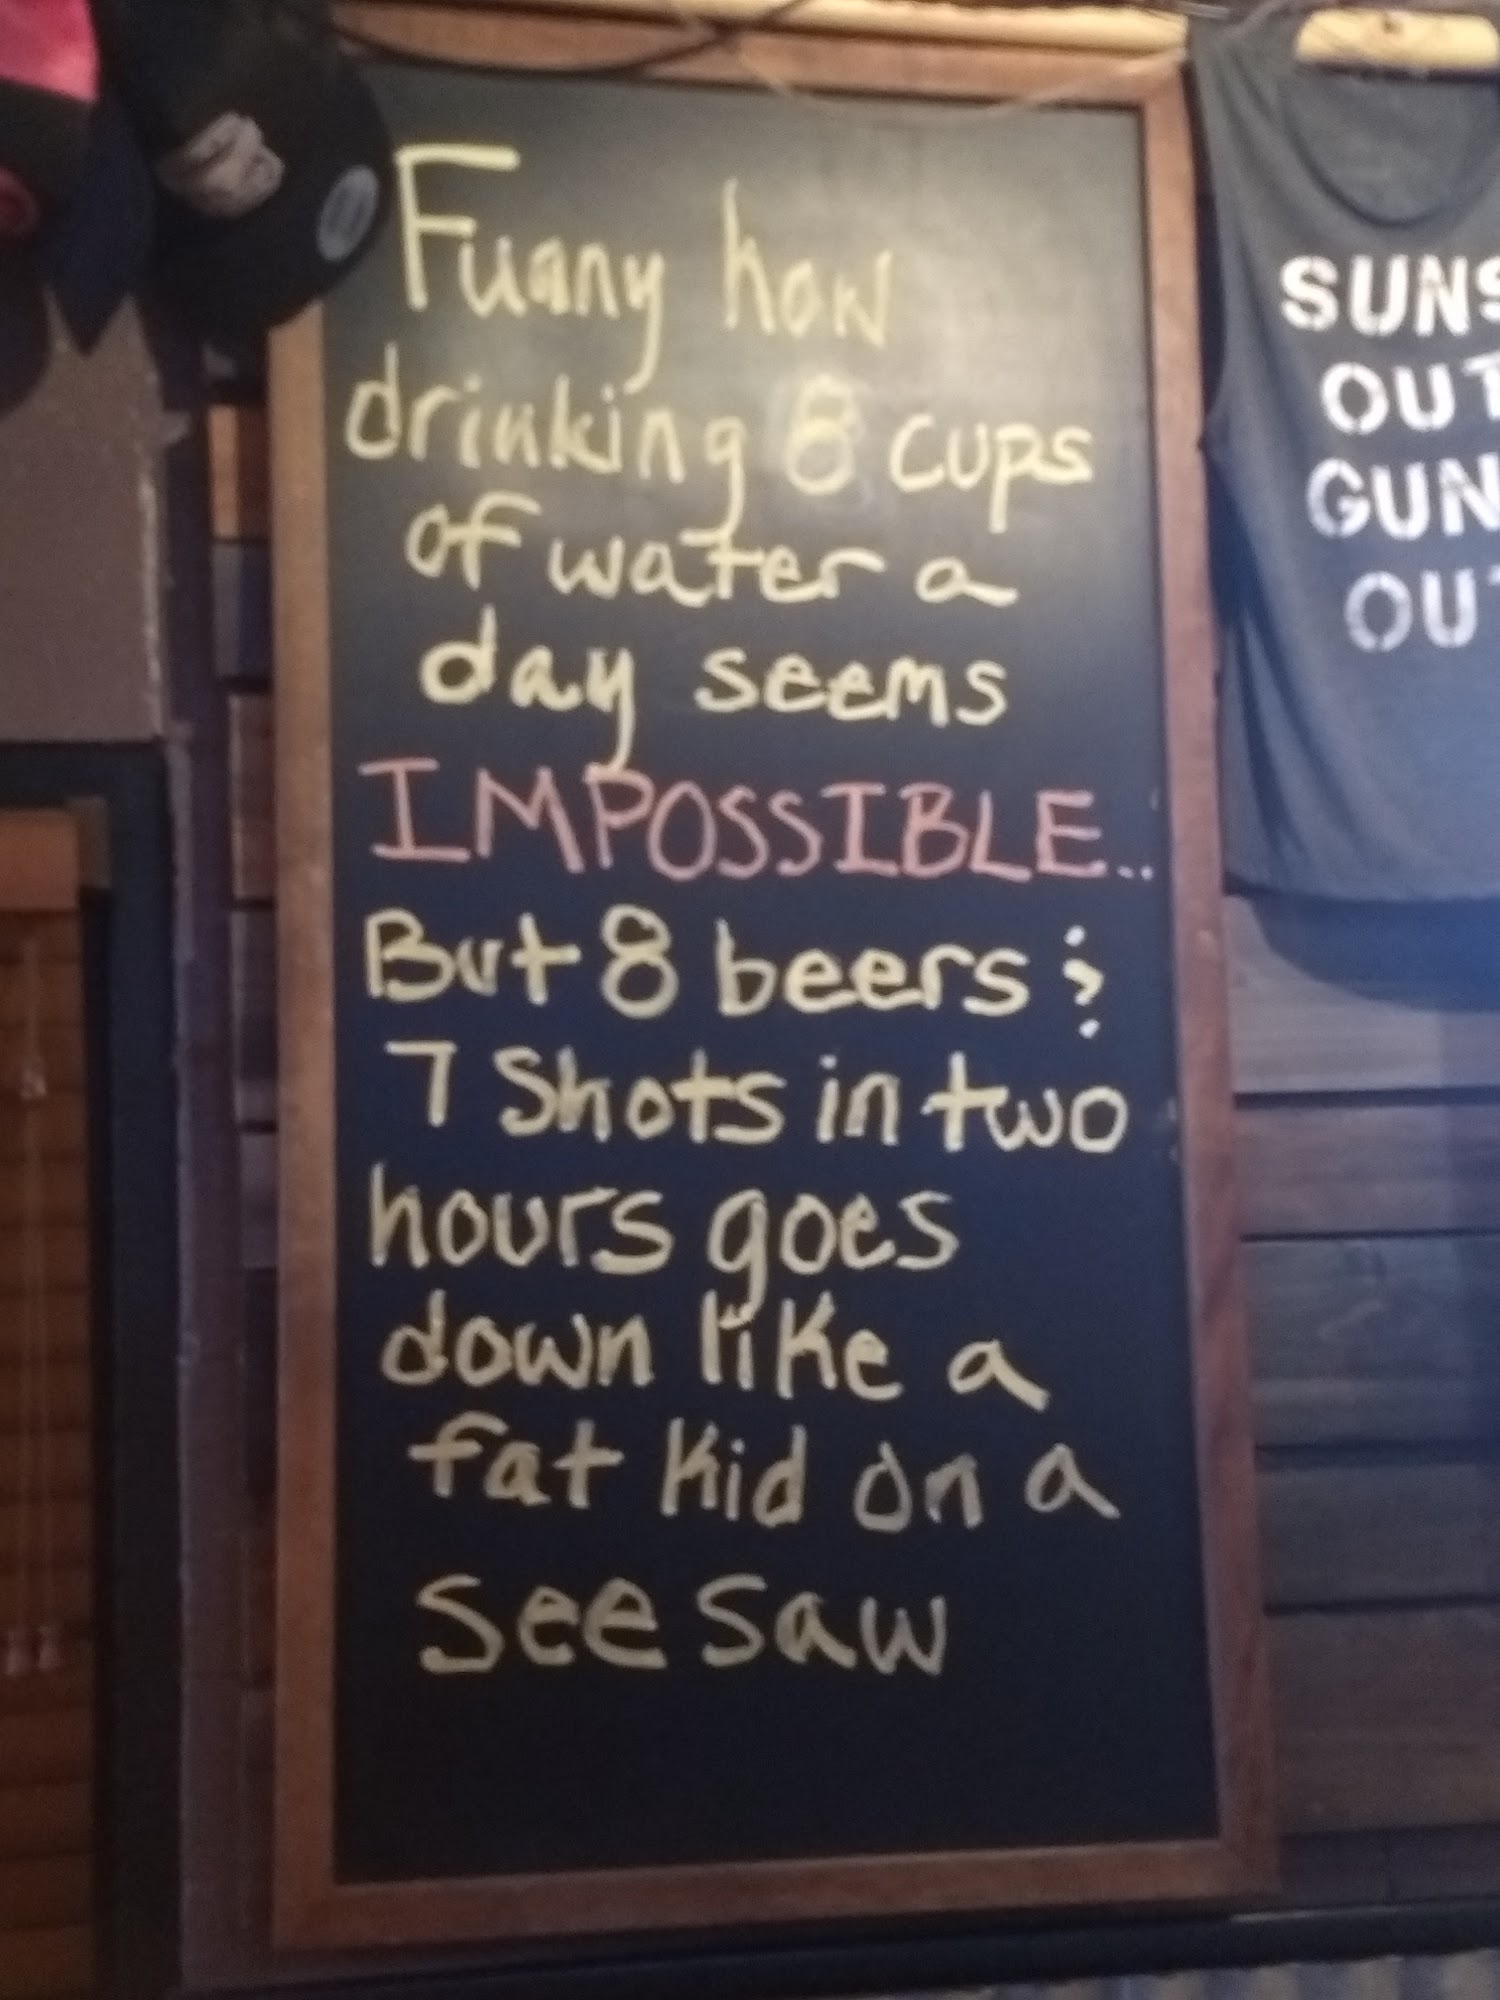 Funny how
drinking 8 cups
of water a
day seems
IMPOSSIBLE..
But 8 beers &
7 Shots in two
hours goes
down like a
fat kid on a
see saw
SUNS
OUT
GUN
OUT